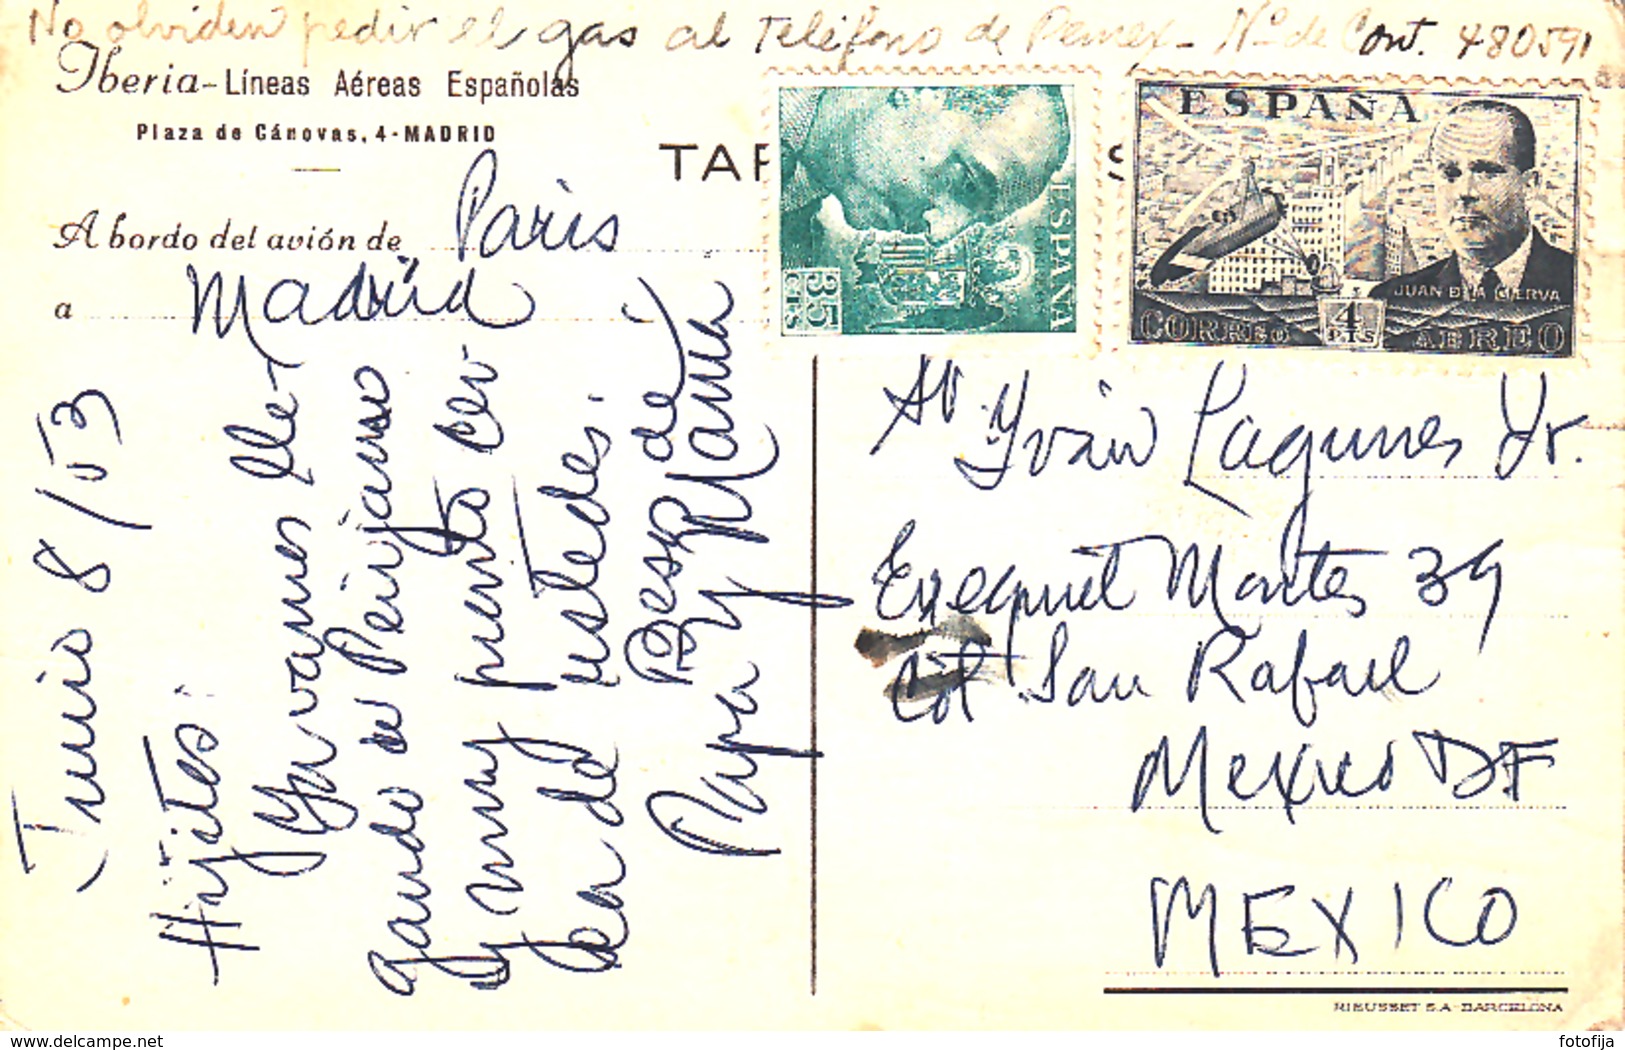 No olviden pedir el gas al Teléfono de Pemex - Nº de Cont. 480591
Iberia - Líneas Aéreas Españolas
Plaza de Cánovas, 4 - MADRID
TAR
S
A bordo del avión de Paris
a Madrid
Junio 8/53
Hijitos:
Ya vamos lle-
gando
y muy pronto cer
ca de ustedes.
Besos de
Papa y Mamá
ESPAÑA
35
CTS
ESPAÑA
JUAN DE LA CIERVA
CORREO 4 PTS AEREO
Sr. Yván Lagunes Jr.
Ezequiel Montes 39
Col San Rafael
Mexico DF
MEXICO
RIEUSSET S.A - BARCELONA
delcampe.net
fotofija